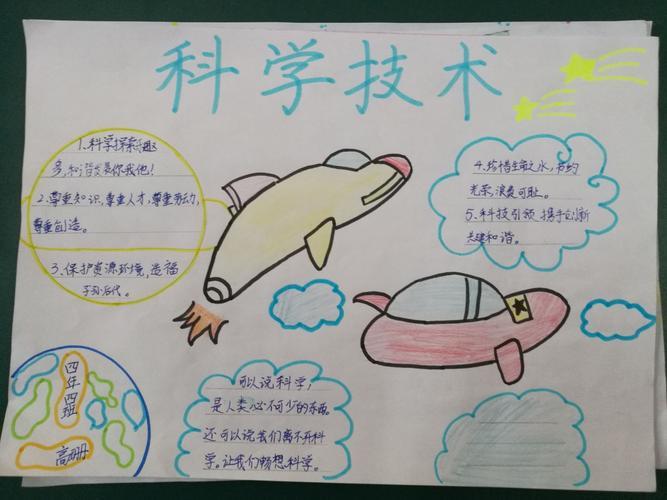 科学技术
1.科学探索趣
多,知识是你我他!
2.尊重知识,尊重人才,尊重劳动,
尊重创造。
3.保护资源环境,造福
子孙后代。
4.珍惜生命之水,节约
光荣,浪费可耻。
5.科技引领 携手创新
共建和谐。
可以说科学,
是人类必不可少的东西,
还可以说我们离不开科
学。让我们畅想科学。
四年四班
高珊珊